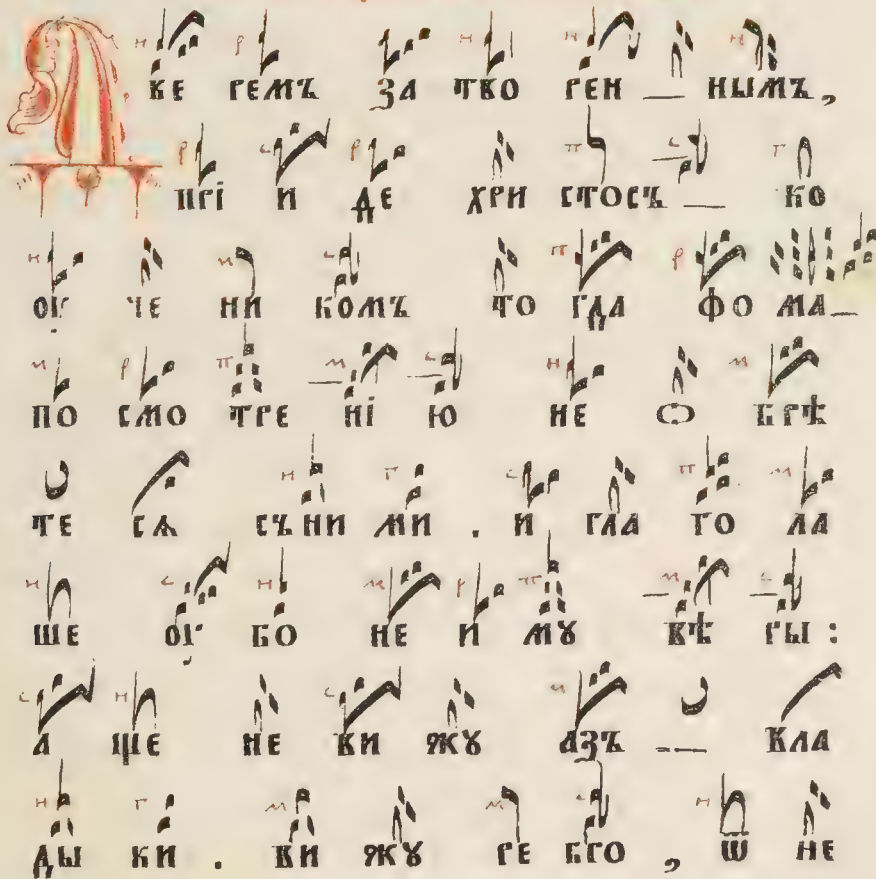 Д ВЕ РЕМЪ ЗА ТВО РЕН — НЫМЪ,
ПРІ И ДЕ ХРИ СТОСЪ — КО
ОУ ЧЕ НИ КОМЪ ТО ГДА ФО МА —
ПО СМО ТРЕ НІ Ю НЕ Ѡ БРѢ
ТЕ СѦ СЪ НИ МИ . И ГЛА ГО ЛА
ШЕ ОУ БО НЕ И МꙊ ВѢ РЫ :
А ЩЕ НЕ ВИ ЖꙊ АЗЪ — ВЛА
ДЫ КИ . ВИ ЖꙊ РЕ БРО , Ѿ НЕ